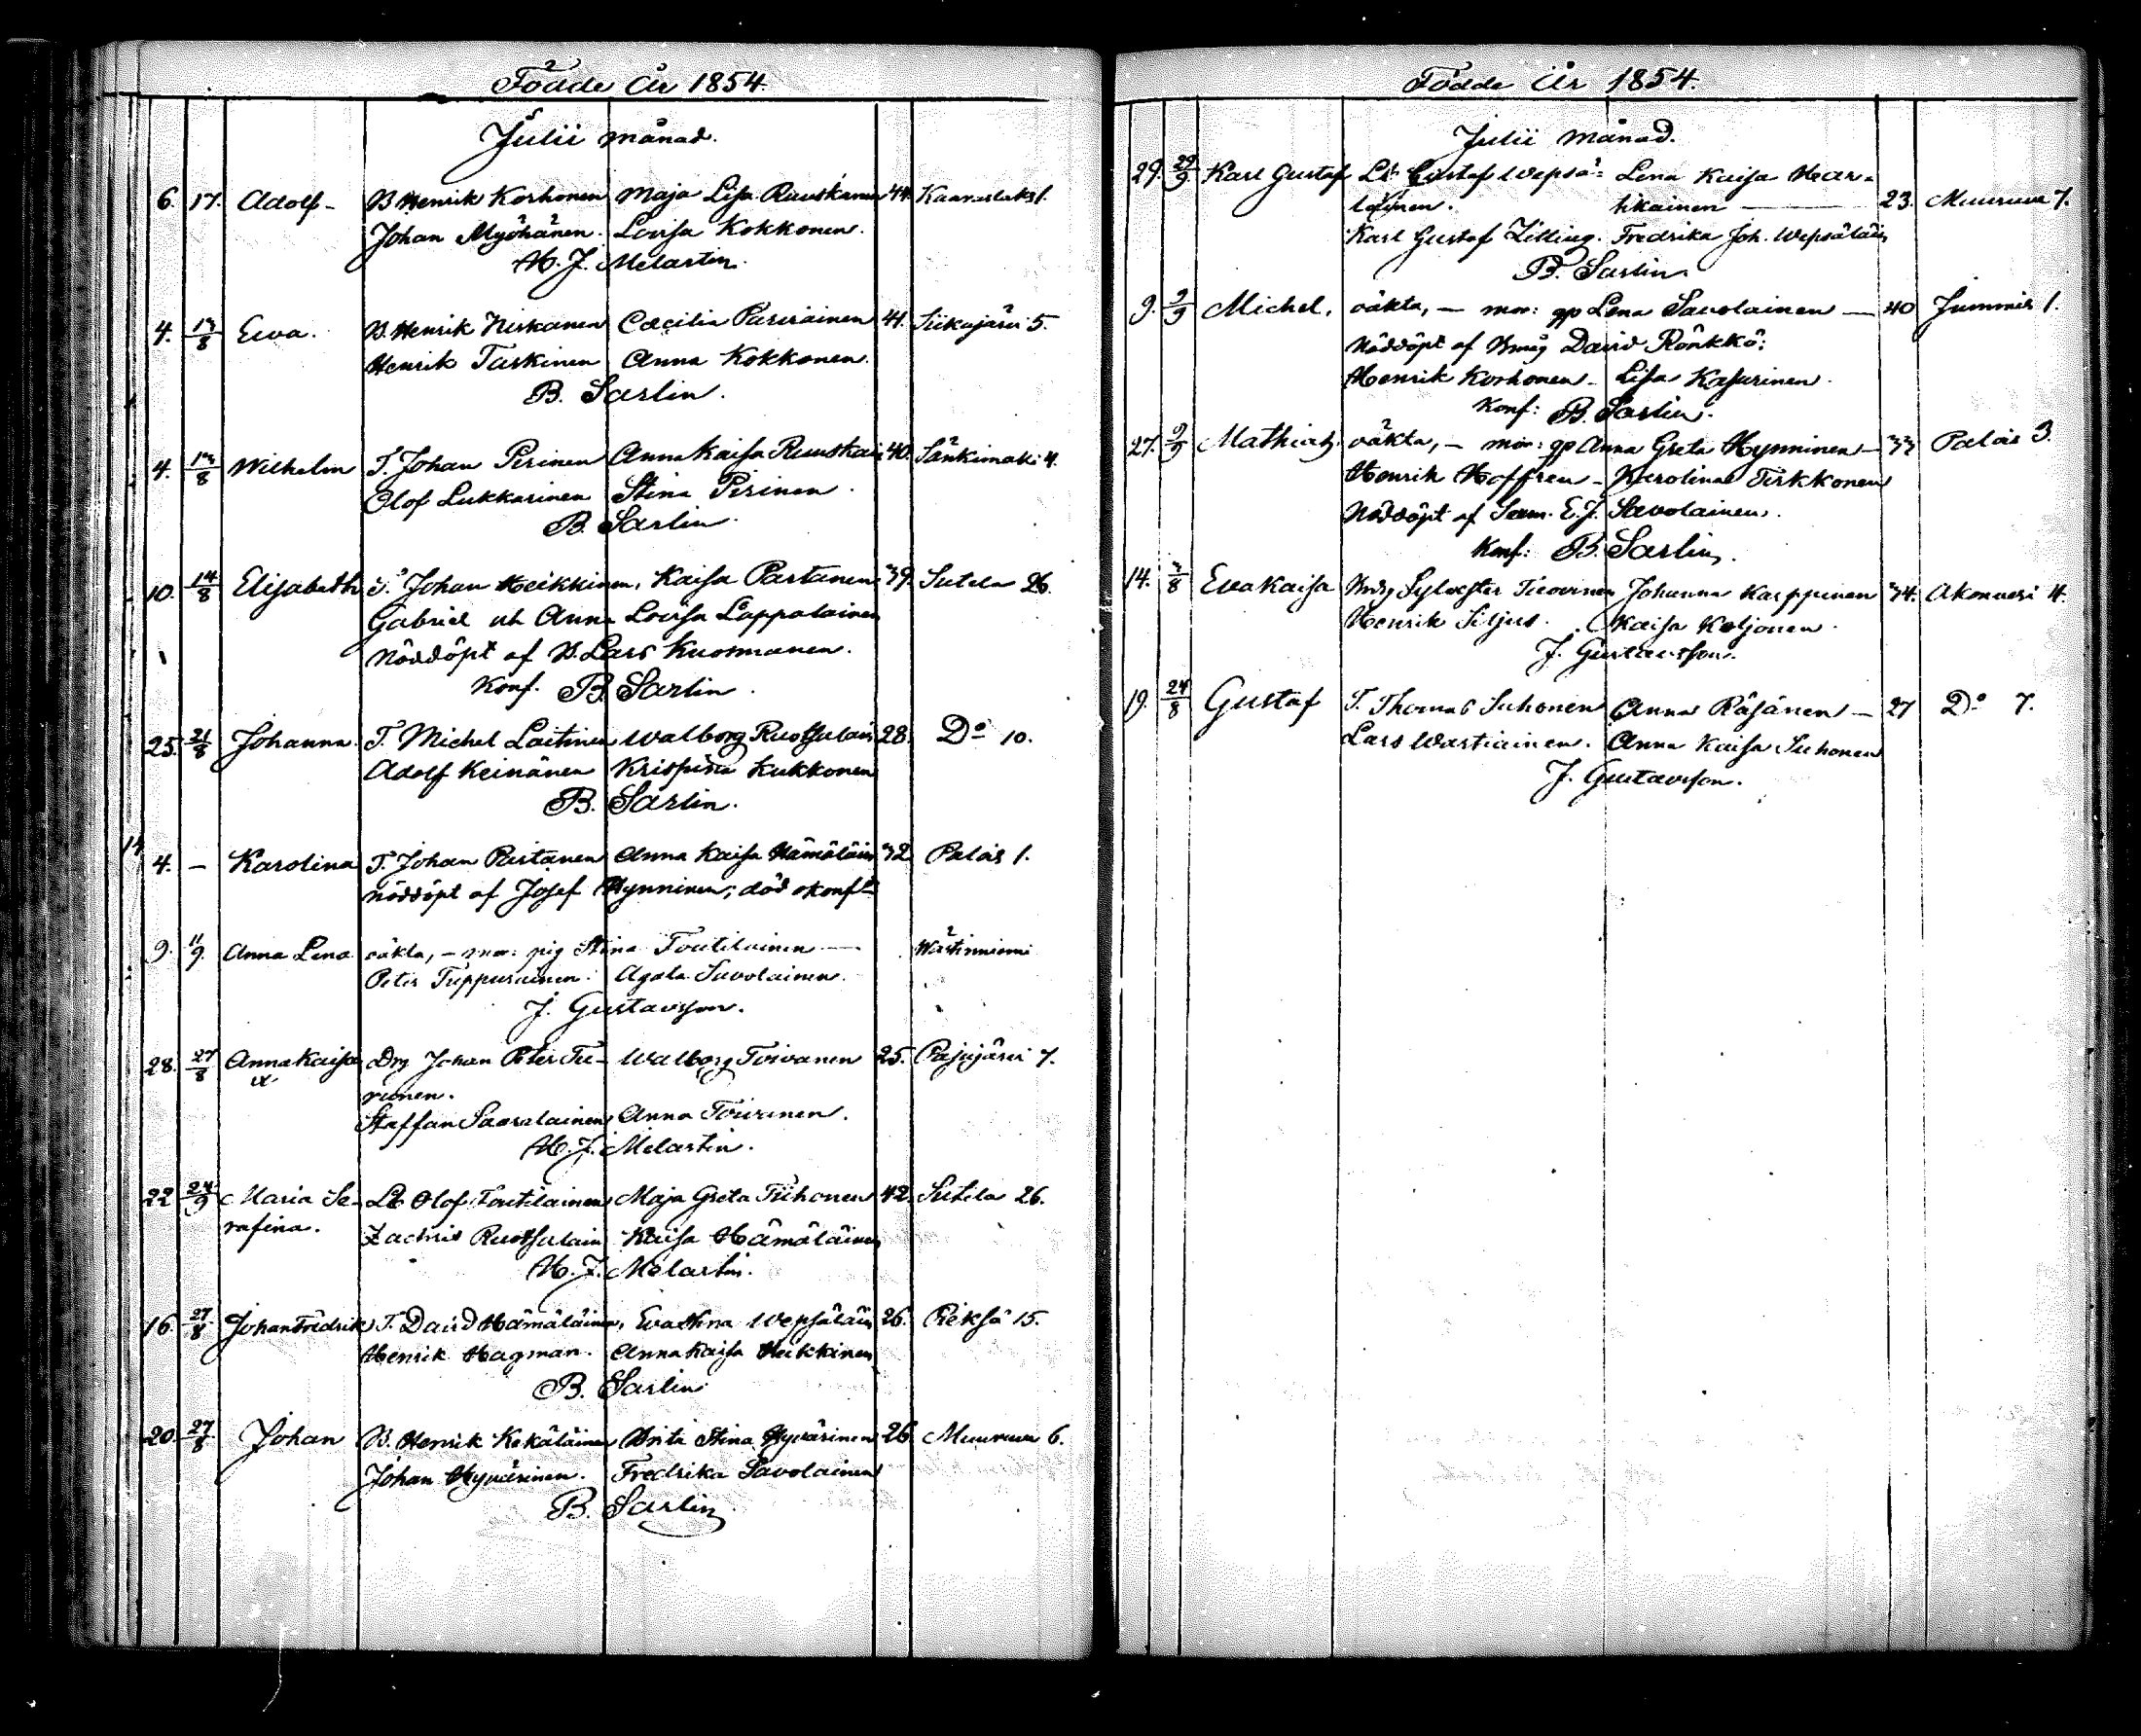 Födde År 1854.
Julii månad.
6. 17. Adolf - B Henrik Korhonen Maja Lisa Ruuskanen 44. Kaavinlaks 1.
Johan Myöhänen. Lovisa Kokkonen.
H. J. Melartin.
4. 13/8 Ewa. B. Henrik Niskanen Cæcilia Parviainen 41. Siikajärvi 5.
Henrik Taskinen Anna Kokkonen.
B. Sarlin.
4. 13/8 Wilhelm T. Johan Pirinen Anna Kaisa Ruuskai 40. Sänkimäki 4.
Olof Lukkarinen Stina Pirinen.
B. Sarlin.
10. 14/8 Elisabeth T. Johan Heikkinen, Kaisa Partanen 39. Sutela 26.
Gabriel uh Anna Lovisa Lappalainen
Nöddöpt af B. Lars Kuosmanen.
Konf. B. Sarlin.
25. 21/8 Johanna. T. Michel Laitinen Walborg Ruotsalain 28. Do 10.
Adolf Keinänen Krispina Kukkonen
B. Sarlin.
14
4. - Karolina T. Johan Partanen Anna Kaisa Hämäläin 32 Palois 1.
nöddöpt af Josef Hynninen; död okonf.
9. 11/9. Anna Lena oäkta, - mor: pig Stina Toutilainen - Wästinniemi
Peter Tuppurainen. Agata Savolainen.
J. Gustavsson.
28. 27/8 Anna Kaisa Drg Johan Peter Tu- Walborg Toivanen 25. Pajujärvi 7.
runen.
Staffan Savolainen Anna Toivanen.
H. J. Melartin.
22 24/9 Maria Se- Lt Olof Toutilainen Maja Greta Tiihonen 42. Sutela 26.
rafina. Zachris Ruotsalain Kaisa Hämäläinen
H. J. Melartin.
16. 27/8 Johan Fredrik T. David Hämäläinen, Eva Stina Wepsäläin 26. Reksä 15.
Henrik Hagman. Anna Kaisa Heikkinen
B. Sarlin
20. 27/8 Johan B. Henrik Kekäläinen Brita Stina Hyvärinen 26 Muuruvesi 6.
Johan Hyvärinen. Fredrika Savolainen
B. Sarlin
Födde År 1854.
Julii månad.
29. 29/9 Karl Gustaf Lt Gustaf Wepsä= Lena Kaisa Har=
läinen. tikainen - 23. Muuruve 7.
Karl Gustaf Zitting. Fredrika Joh. Wepsäläin
B. Sarlin
9. 9/9 Michel, oäkta, - mor: gp Lena Savolainen - 40 Jummis 1.
Nöddöpt af Bmåg David Rönkkö:
Henrik Korhonen - Lisa Kasurinen.
Konf: B. Sarlin.
27. 9/9 Mathias, oäkta, - mor: gp Anna Greta Hynninen - 33 Palois 3.
Henrik Hoffren - Karolina Tirkkonen
Nöddöpt af E. J. Savolainen.
Konf: B. Sarlin.
14. 3/8 Eva Kaisa Bmåg Sylvester Tiovinen Johanna Karppinen 34. Akonvesi 4.
Henrik Siljus. Kaisa Koljonen.
J. Gustavsson.
19. 24/8 Gustaf T. Thomas Suhonen Anna Räsänen - 27 Do 7.
Lars Wartiainen. Anna Kaisa Suhonen
J. Gustavsson.